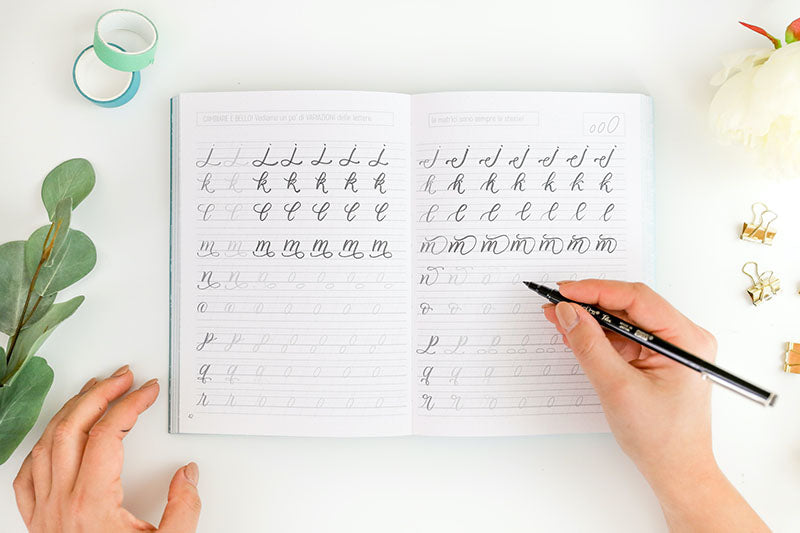 CAMBIARE È BELLO! Vediamo un po' di VARIAZIONI delle lettere
j j j j j j j
k k k k k k k
l l l l l l l
m m m m m m m
n n
o o
p p
q q
r r
le matrici sono sempre le stesse!
j j j j j j j
k k k k k k k
l l l l l l l
m m m m m m m
n n
o o
p p
q q
r r